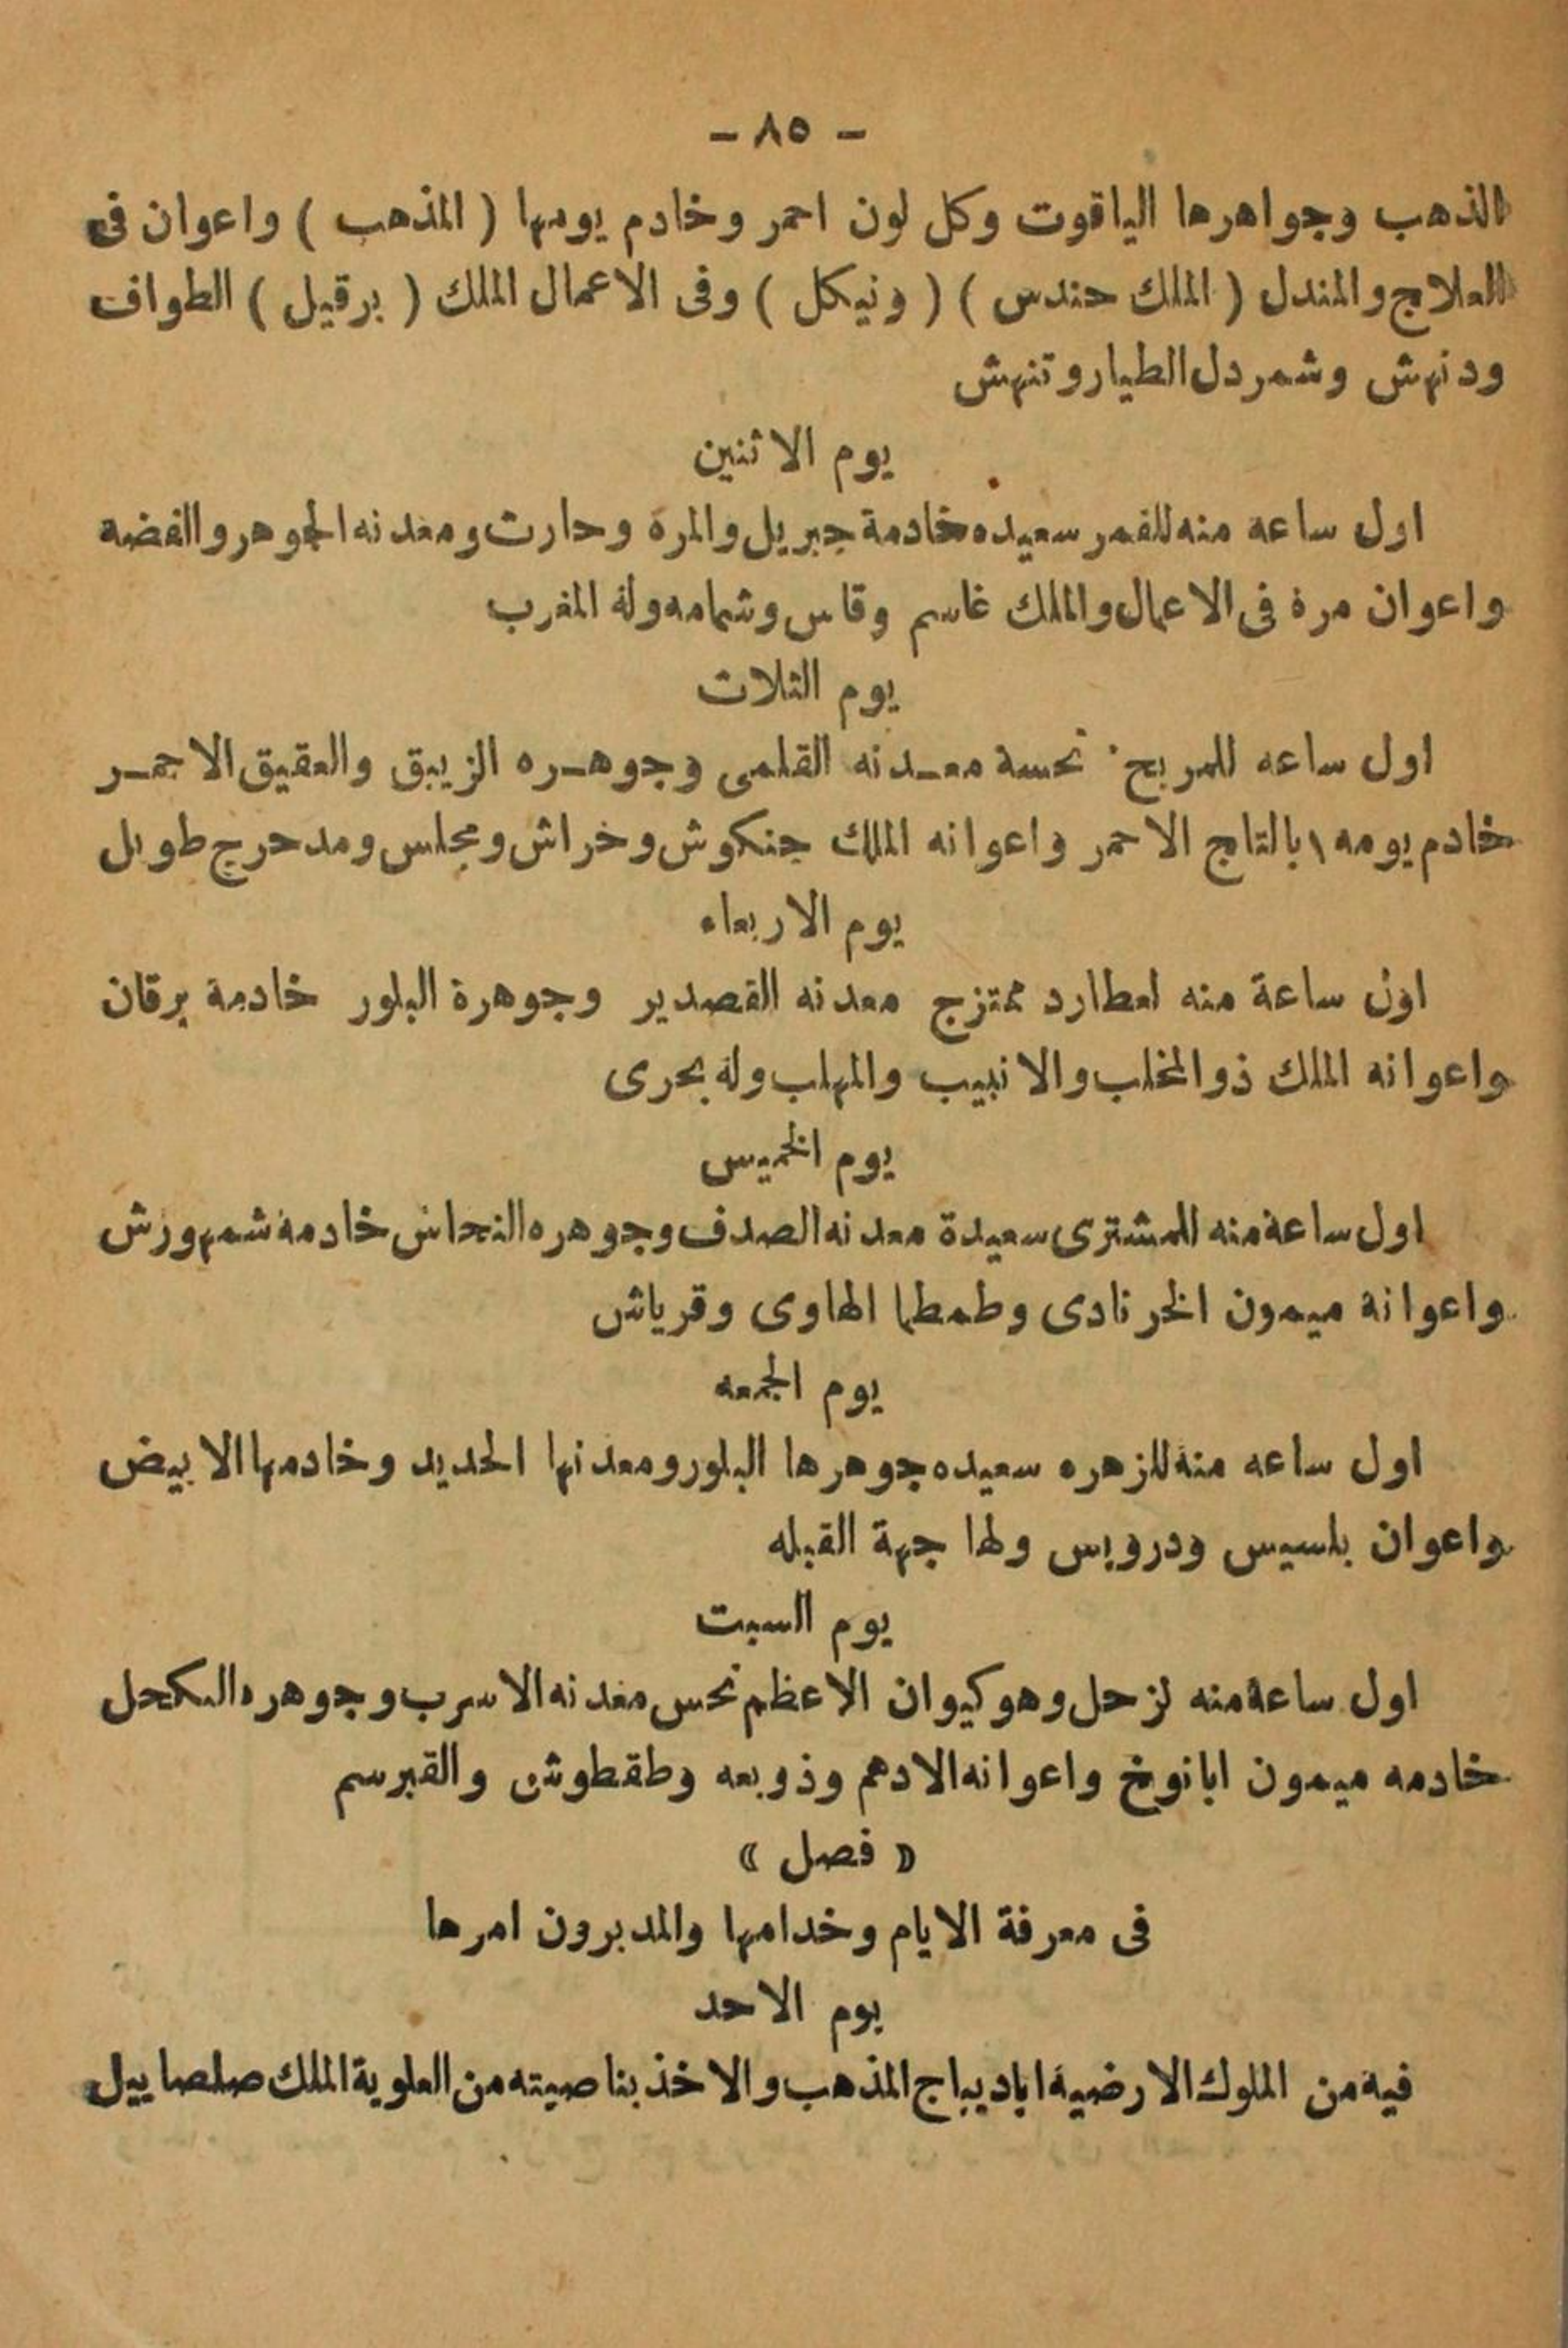 - ٨٥ -
الذهب وجواهرها الياقوت وكل لون احمر وخادم يومها ( المذهب ) واعوان فى
العلاج والمندل ( الملك حندس ) ( ونيكل ) وفى الاعمال الملك ( برقيل ) الطواف
ودنهش وشمردل الطيار وتنهش
يوم الاثنين
اول ساعه منه للقمر سعيده خادمة جبريل والمره وحارث ومعدنه الجوهر والفضه
واعوان مرة فى الاعمال والملك غاسم وقاس وشمامه ولة المغرب
يوم الثلاث
اول ساعه للمريخ نحسة معـدنه القلعى وجوهـره الزيبق والعقيق الاحمـر
خادم يومه ابا لتاج الاحمر واعوانه الملك جنكوش وخراش ومجلس ومدحرج طويل
يوم الاربعاء
اول ساعة منه لعطارد ممتزج معدنه القصدير وجوهرة البلور خادمة برقان
واعوانه الملك ذو المخلب والانبيب والمهلب وله بحرى
يوم الخميس
اول ساعة منه للمشترى سعيدة معدنه الصدف وجوهره النحاس خادمة شمهورش
واعوانة ميمون الخرنادى وطمطما الهاوى وقرياش
يوم الجمعه
اول ساعه منة للزهره سعيده جوهرها البلور ومعدنها الحديد وخادمها الابيض
واعوان بلسيس ودرويس ولها جهة القبله
يوم السبت
اول ساعة منه لزحل وهو كيوان الاعظم نحس معدنه الاسرب وجوهره الكحل
خادمه ميمون ابانوخ واعوانه الادهم وذوبعه وطقطوش والقبرسم
« فصل »
فى معرفة الايام وخدامها والمدبرون امرها
يوم الاحد
فيه من الملوك الارضية اباديباج المذهب والاخذ بناصيته من العلوية الملك صلصاييل